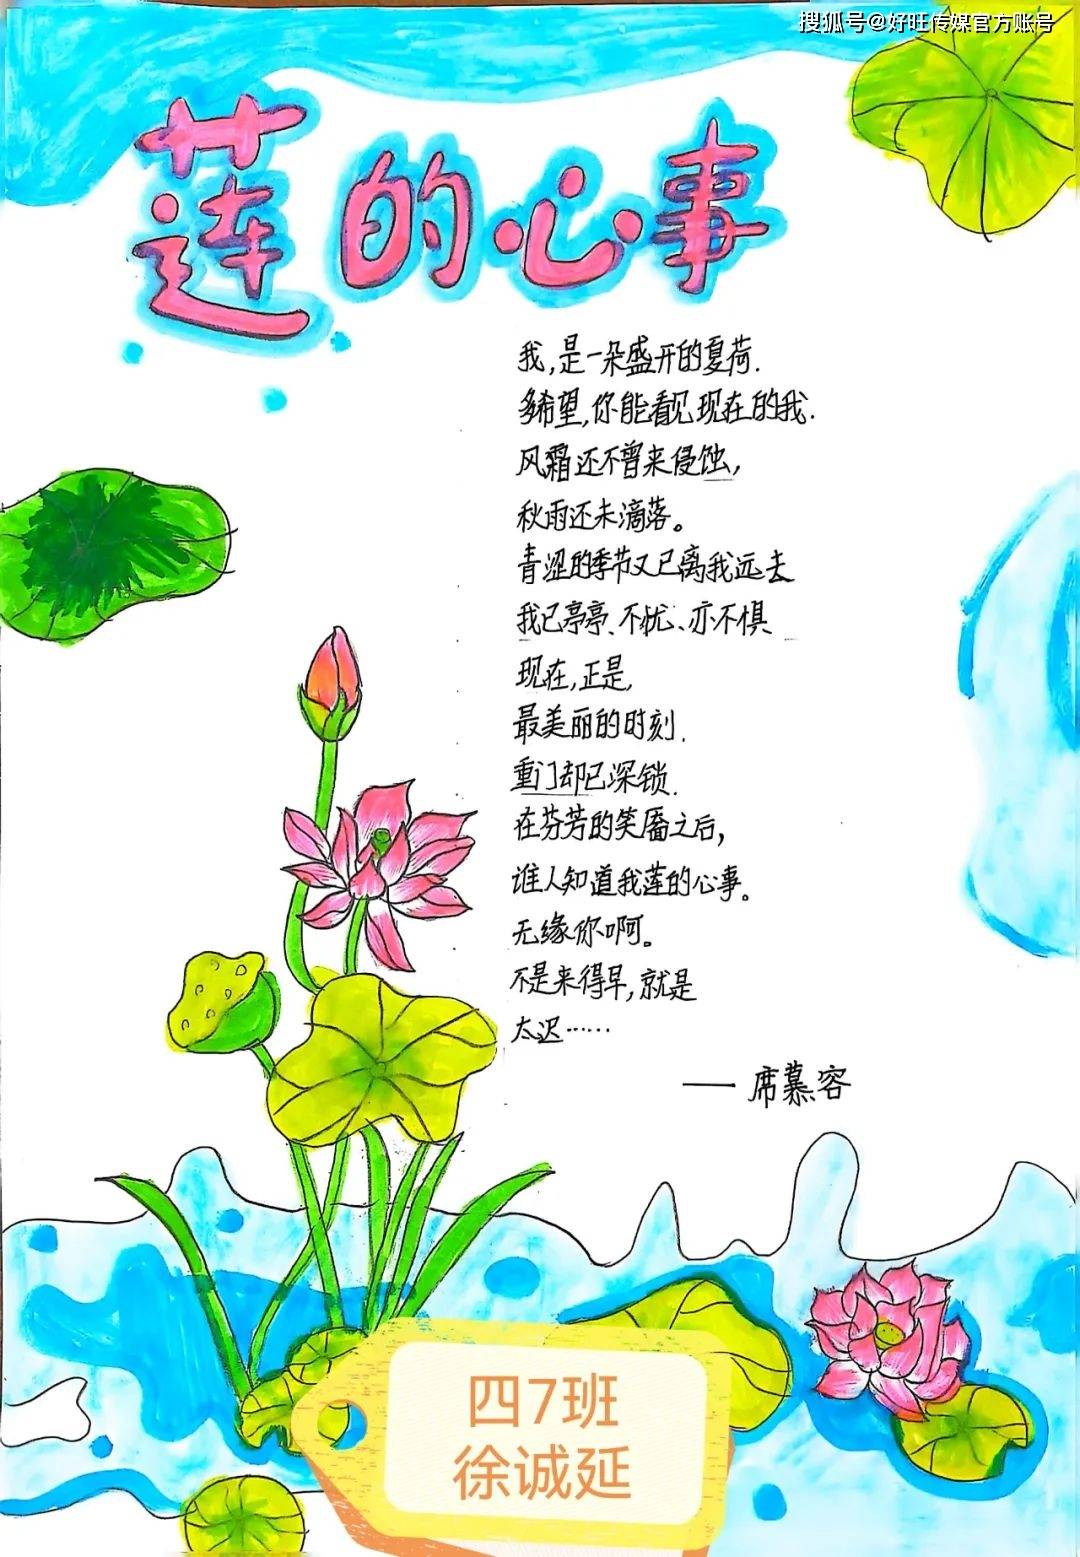 搜狐号@好旺传媒官方账号
莲的心事
我,是一朵盛开的夏荷.
多希望,你能看见现在的我.
风霜还不曾来侵蚀,
秋雨还未滴落。
青涩的季节又已离我远去
我已亭亭、不忧、亦不惧
现在,正是,
最美丽的时刻.
重门却已深锁.
在芬芳的笑靥之后,
谁人知道我莲的心事。
无缘你啊。
不是来得早,就是
太迟……
——席慕容
四7班
徐诚延